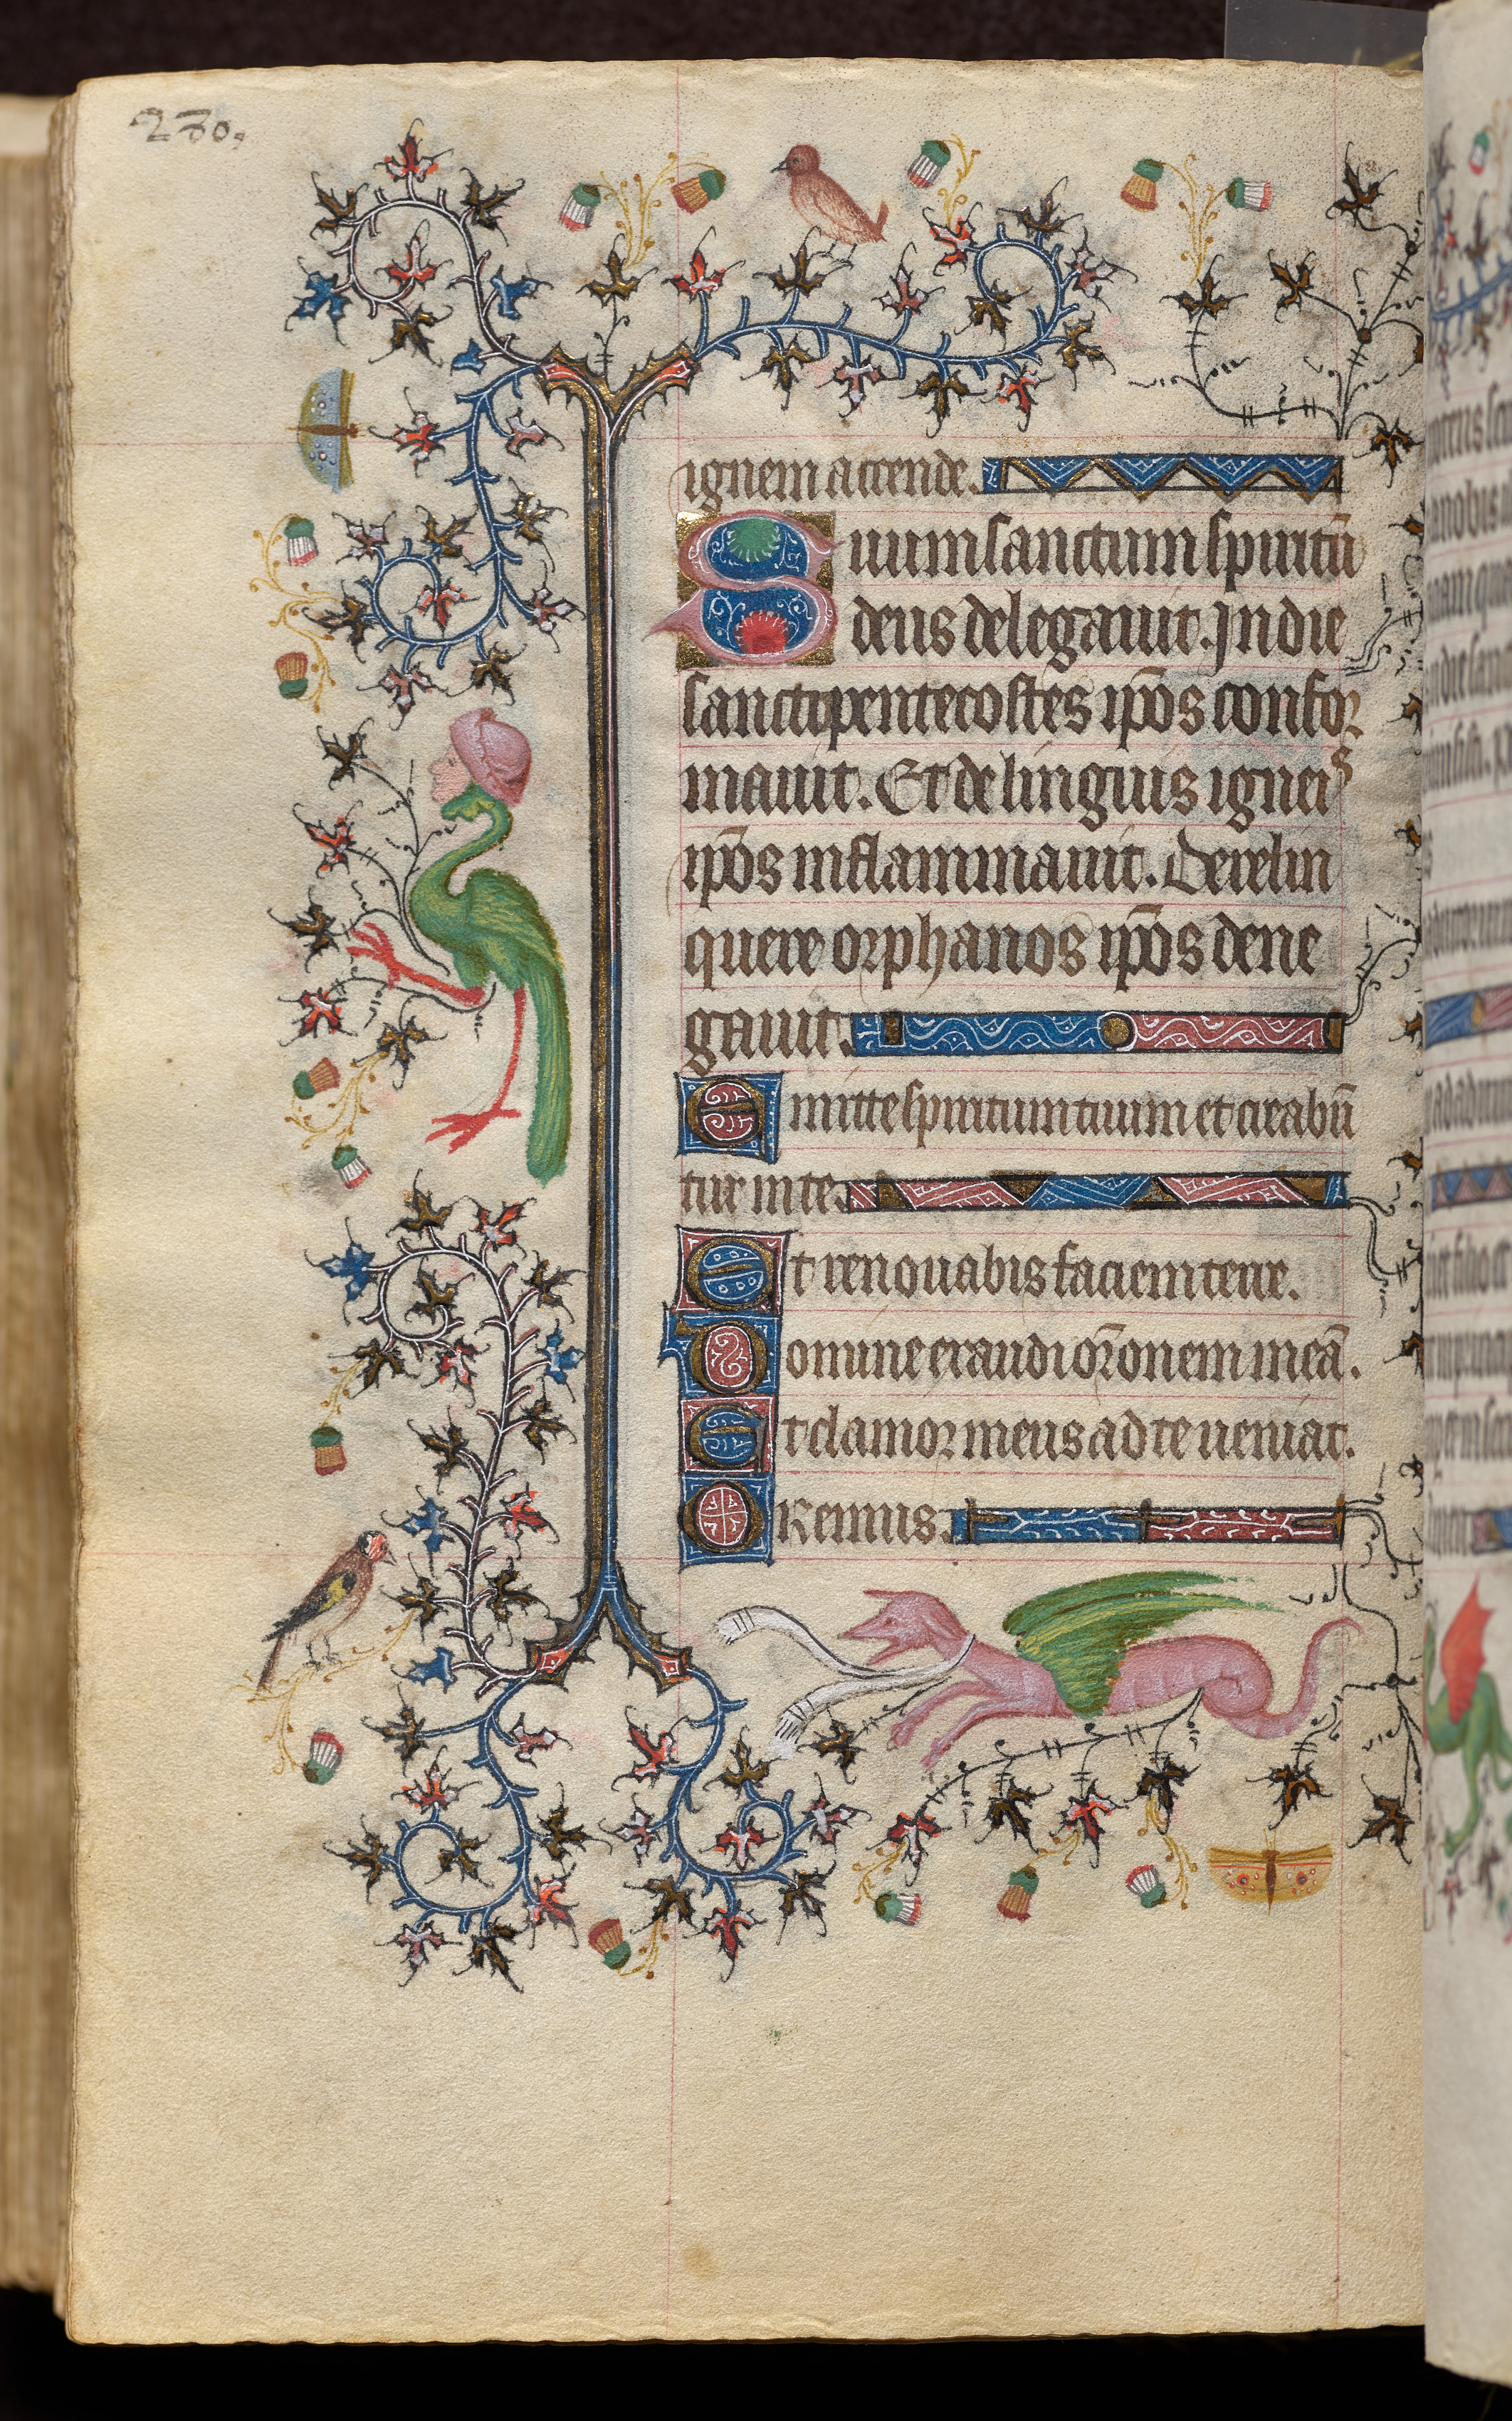 230,
ignem accende.
Suum sanctum spiritū
deus delegauit. In die
sancti pentecostes ip̄os confor
mauit. Et de linguis igneis
ip̄os inflammauit. Derelin
quere orphanos ip̄os dene
gauit.
Emitte spiritum tuum et creabū
tur in te.
Et renouabis faciem terre.
Domine exaudi or̄onem meā.
Et clamor meus ad te ueniat.
Oremus.